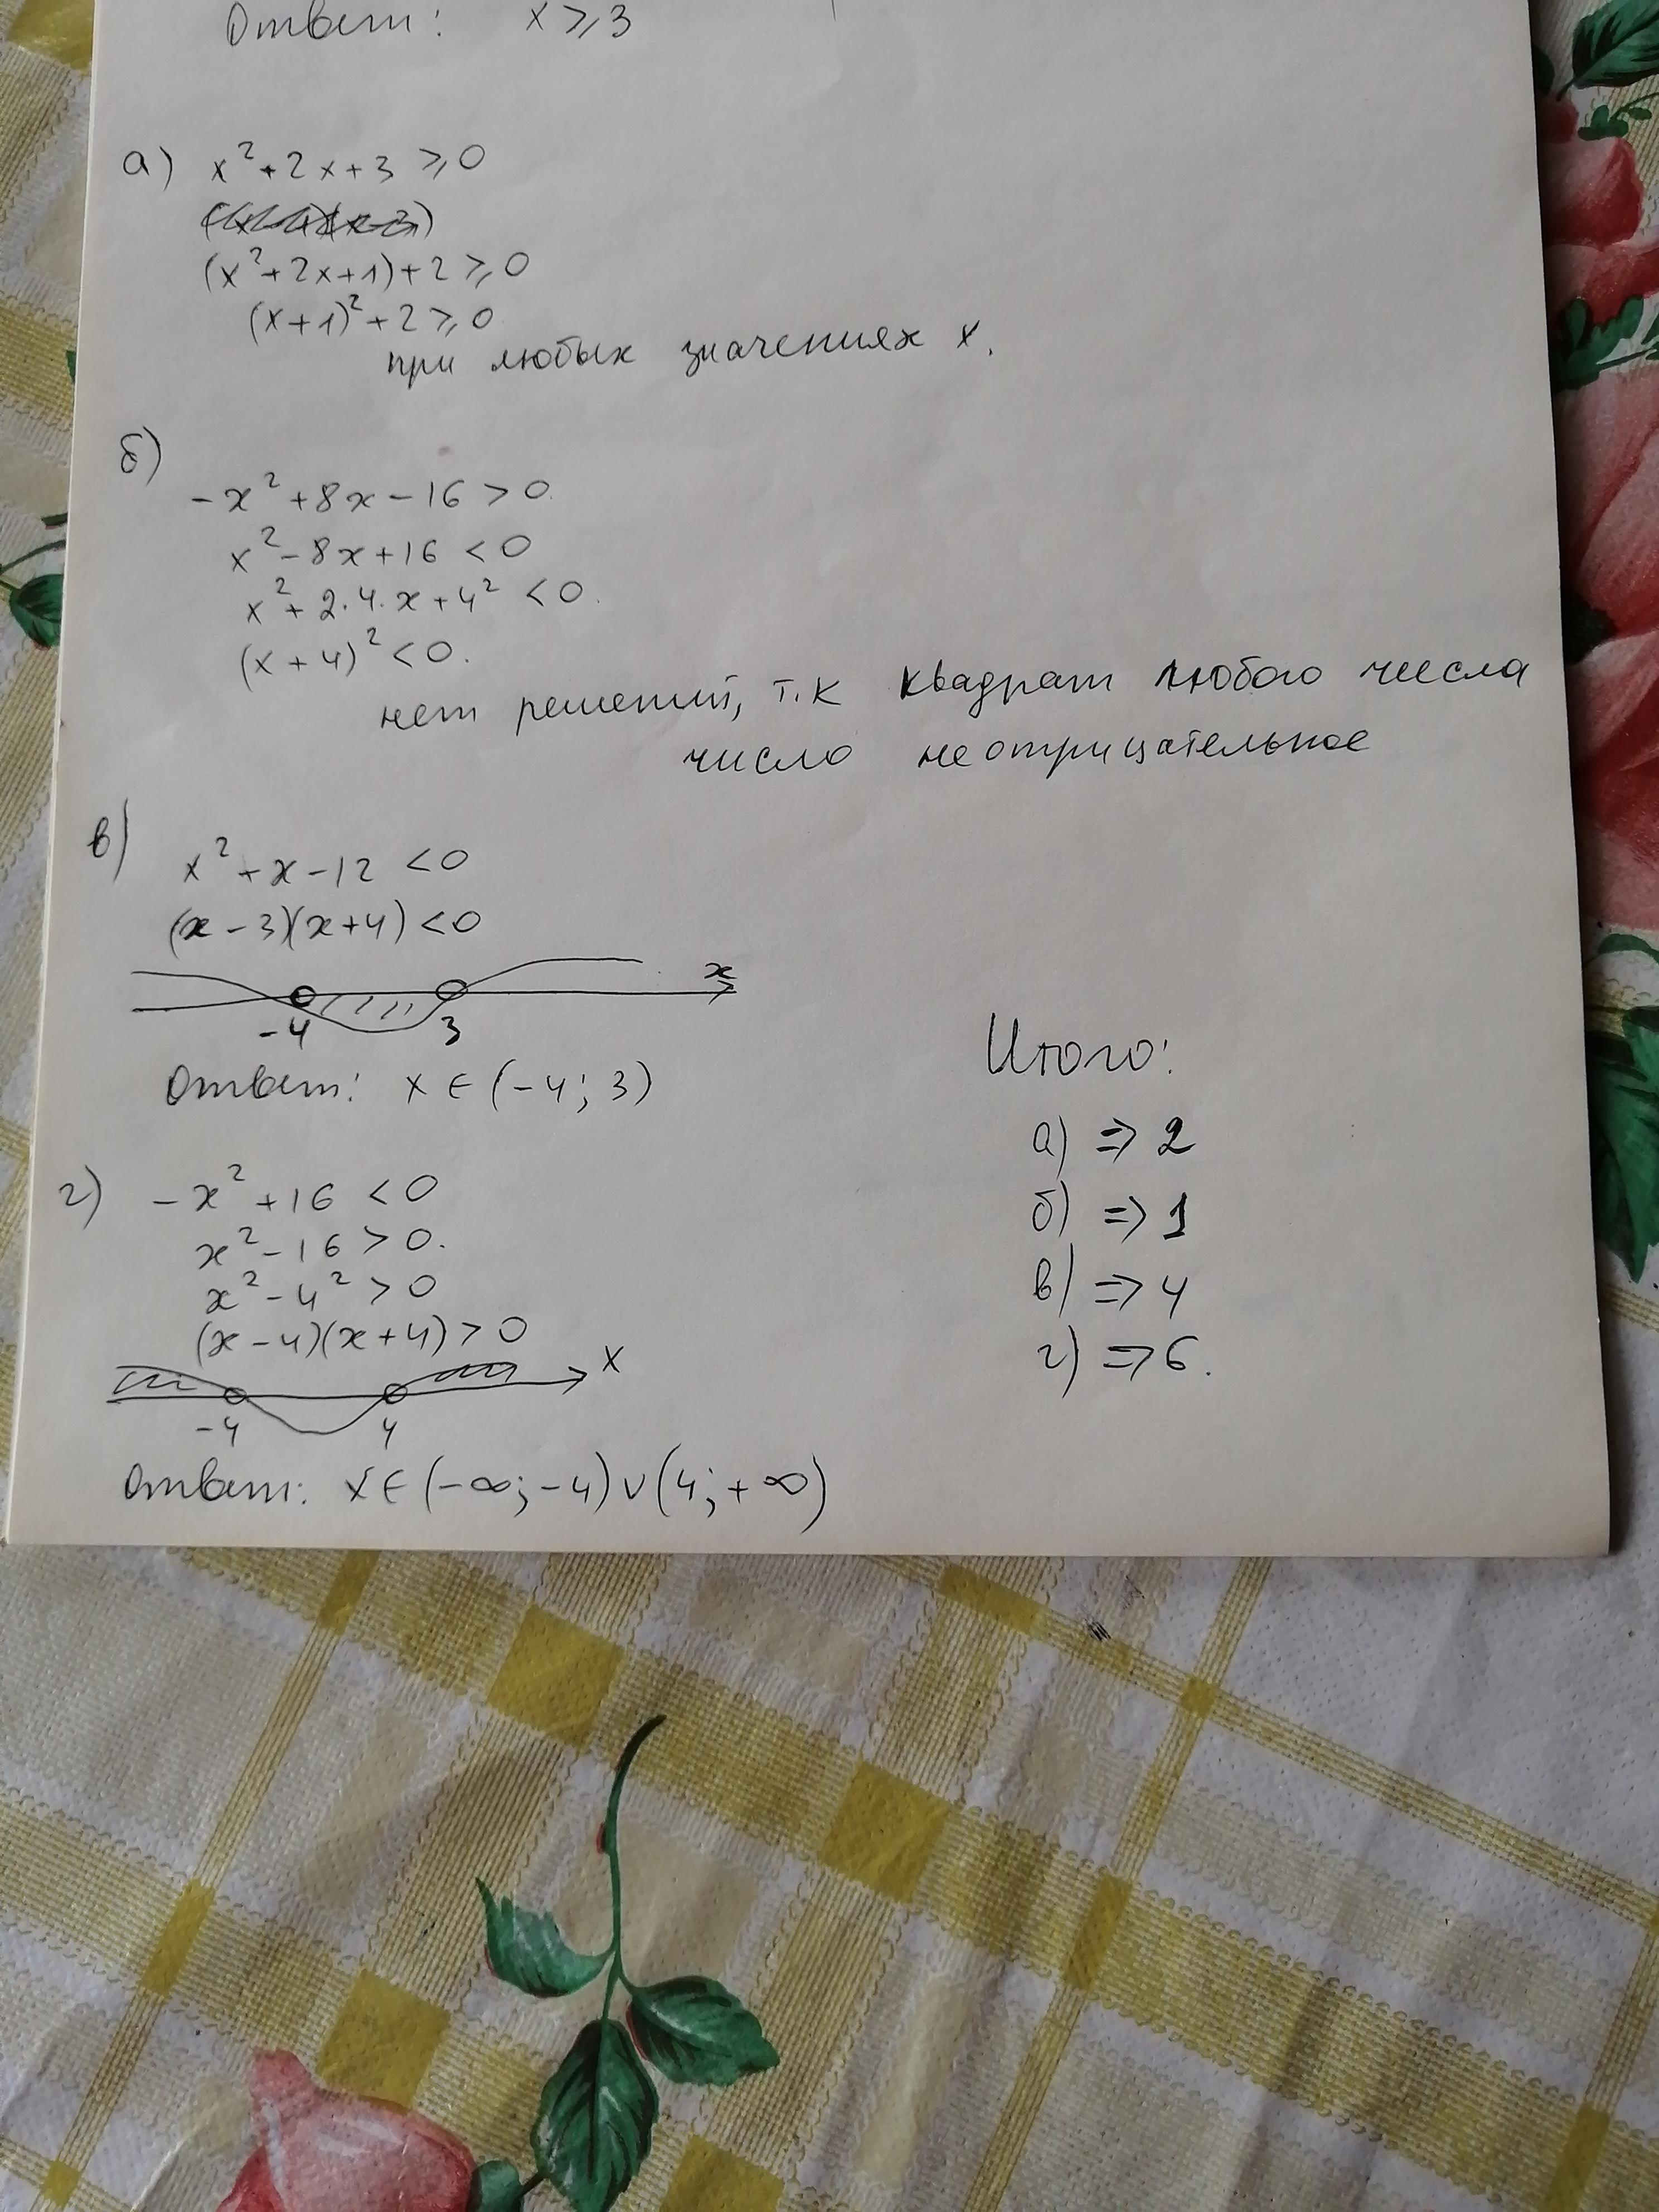 Ответ: x ≥ 3
а) x² + 2x + 3 ≥ 0
(x² + 2x + 1) + 2 ≥ 0
(x + 1)² + 2 ≥ 0
при любых значениях x.
б)
-x² + 8x - 16 > 0
x² - 8x + 16 < 0
x² + 2·4·x + 4² < 0.
(x + 4)² < 0.
нет решений, т.к квадрат любого числа
число неотрицательное
в)
x² + x - 12 < 0
(x - 3)(x + 4) < 0
x
-4 3
Ответ: x ∈ (-4; 3)
г) -x² + 16 < 0
x² - 16 > 0.
x² - 4² > 0
(x - 4)(x + 4) > 0
x
-4 4
Ответ: x ∈ (-∞; -4) ∪ (4; +∞)
Итого:
а) => 2
б) => 1
в) => 4
г) => 6.